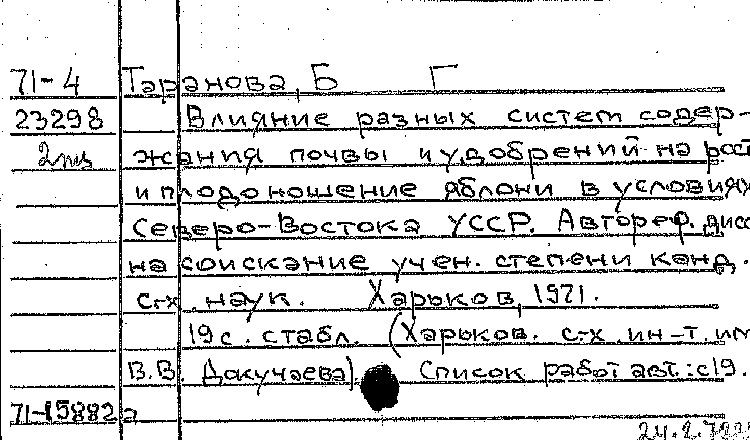 71-4 Таранова, Б Г
23298 Влияние разных систем содер-
2 экз жания почвы и удобрений на рост
и плодоношение яблони в условиях
Северо-Востока УССР. Автореф. дисс
на соискание учен. степени канд.
с-х наук. Харьков, 1971.
19 с. с табл. (Харьков. с-х. ин-т. им
В.В. Докучаева) Список работ авт.: с 19.
71-15882а